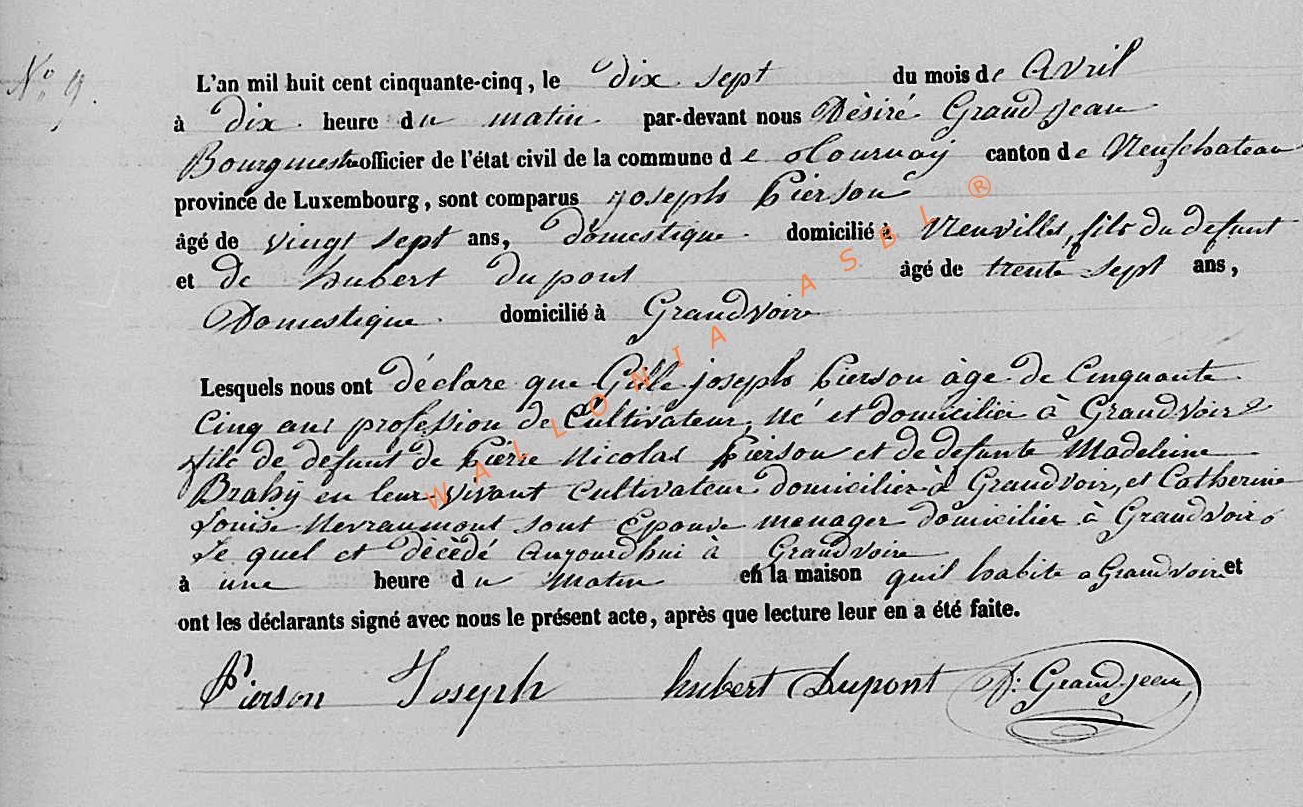 N° 9.
L'an mil huit cent cinquante-cinq, le dix sept du mois de Avril
à dix heure du matin par-devant nous Dèsiré Grandjean
Bourgmestre officier de l'état civil de la commune de Tournay canton de Neufchateau
province de Luxembourg, sont comparus Joseph Pierson
âgé de vingt sept ans, domestique domicilié à Neuvillé, fils du defunt
et de hubert Dupont âgé de trente sept ans,
Domestique domicilié à Grandvoire
Lesquels nous ont déclare que Gille joseph Pierson âge de Cinquante
Cinq ans profession de Cultivateur, né et domicilier à Grandvoir
fils de defunt de Pierre Nicolas Pierson et de defunte Madeleine
Brahy en leur vivant Cultivateur domicilier à Grandvoir, et Catherine
Louise Nevraumont sont Epouve menager domicilier à Grandvoir
le quel et décèdé aujourdhui à Grandvoire
à une heure du matin en la maison quil habite a Grandvoire et
ont les déclarants signé avec nous le présent acte, après que lecture leur en a été faite.
Pierson Joseph hubert Dupont D: Grandjean
WALLONIA ASBL ®